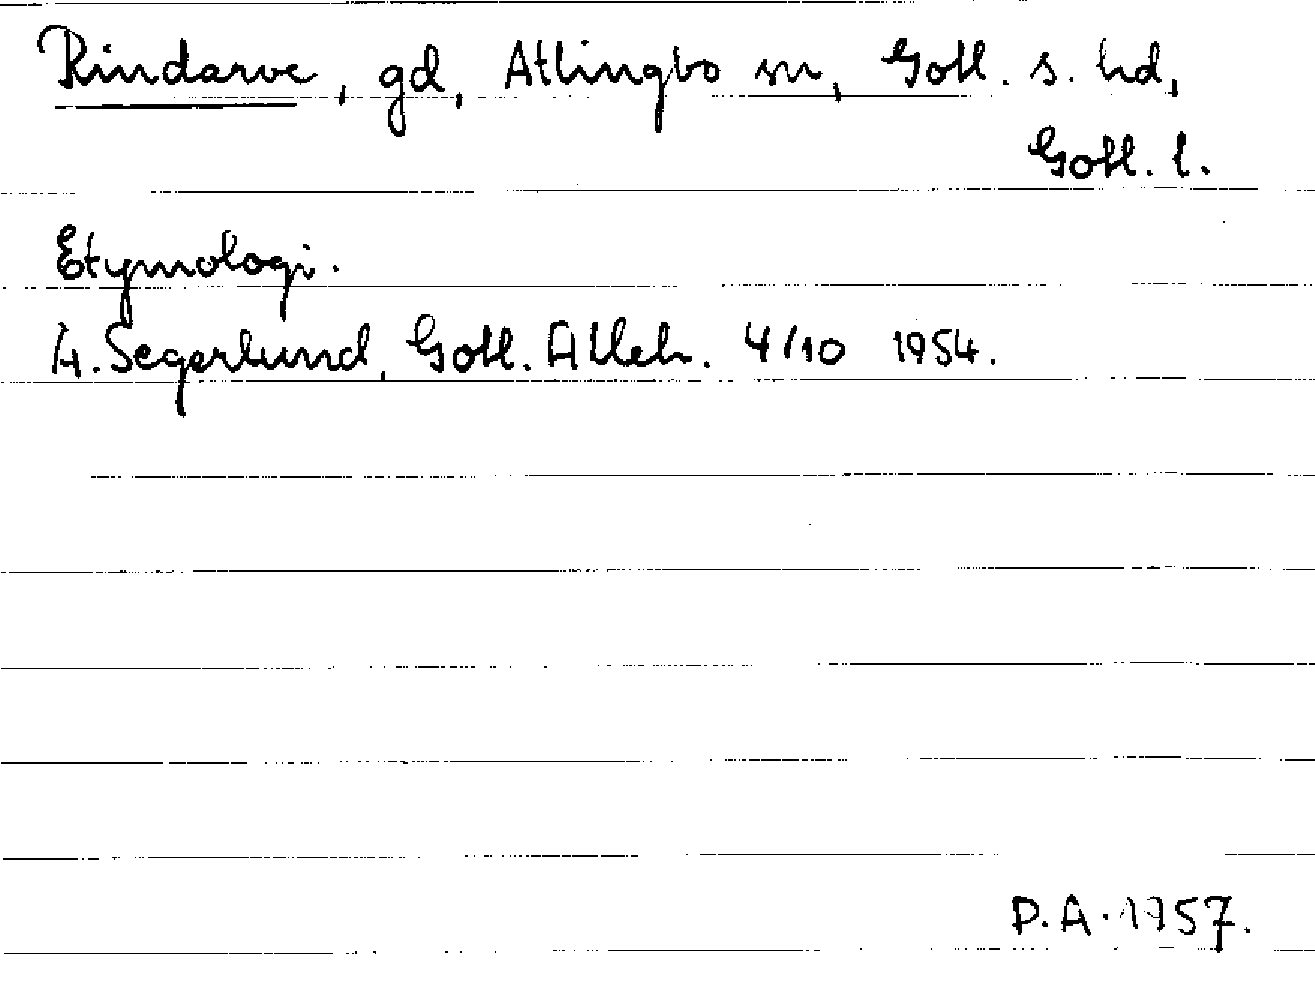 Rindarve, gd, Atlingbo sn, Gotl. s. hd,
Gotl. l.
Etymologi.
A. Segerlund, Gotl. Alleh. 4/10 1954.
P.A. 1957.